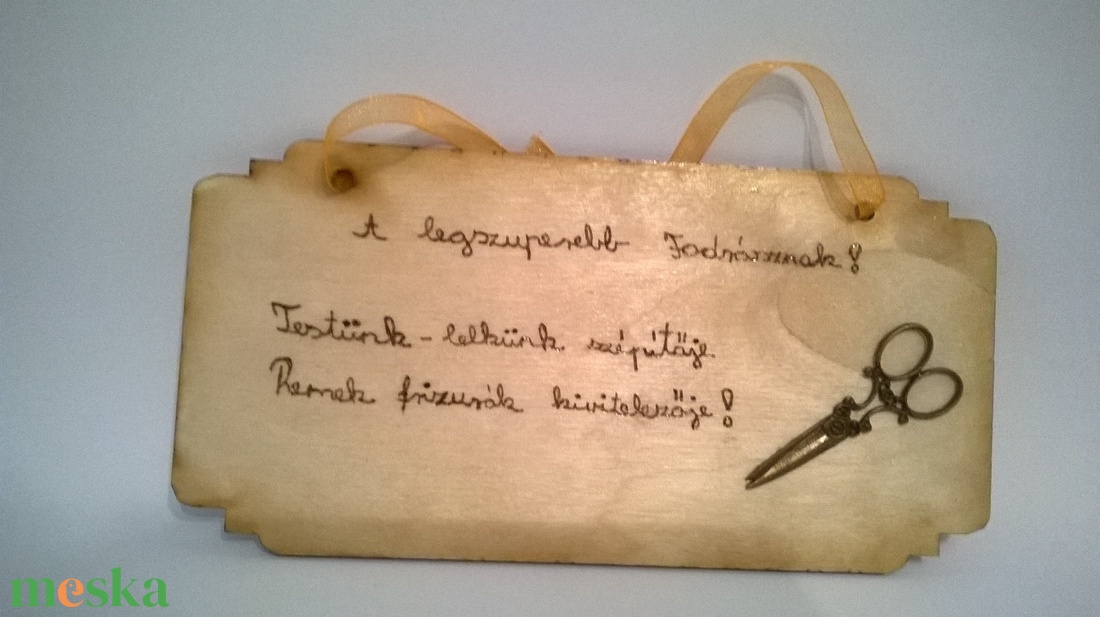 A legszuperebb Fodrásznak!
Testünk-lelkünk szépítője
Remek frizurák kivitelezője!
meska